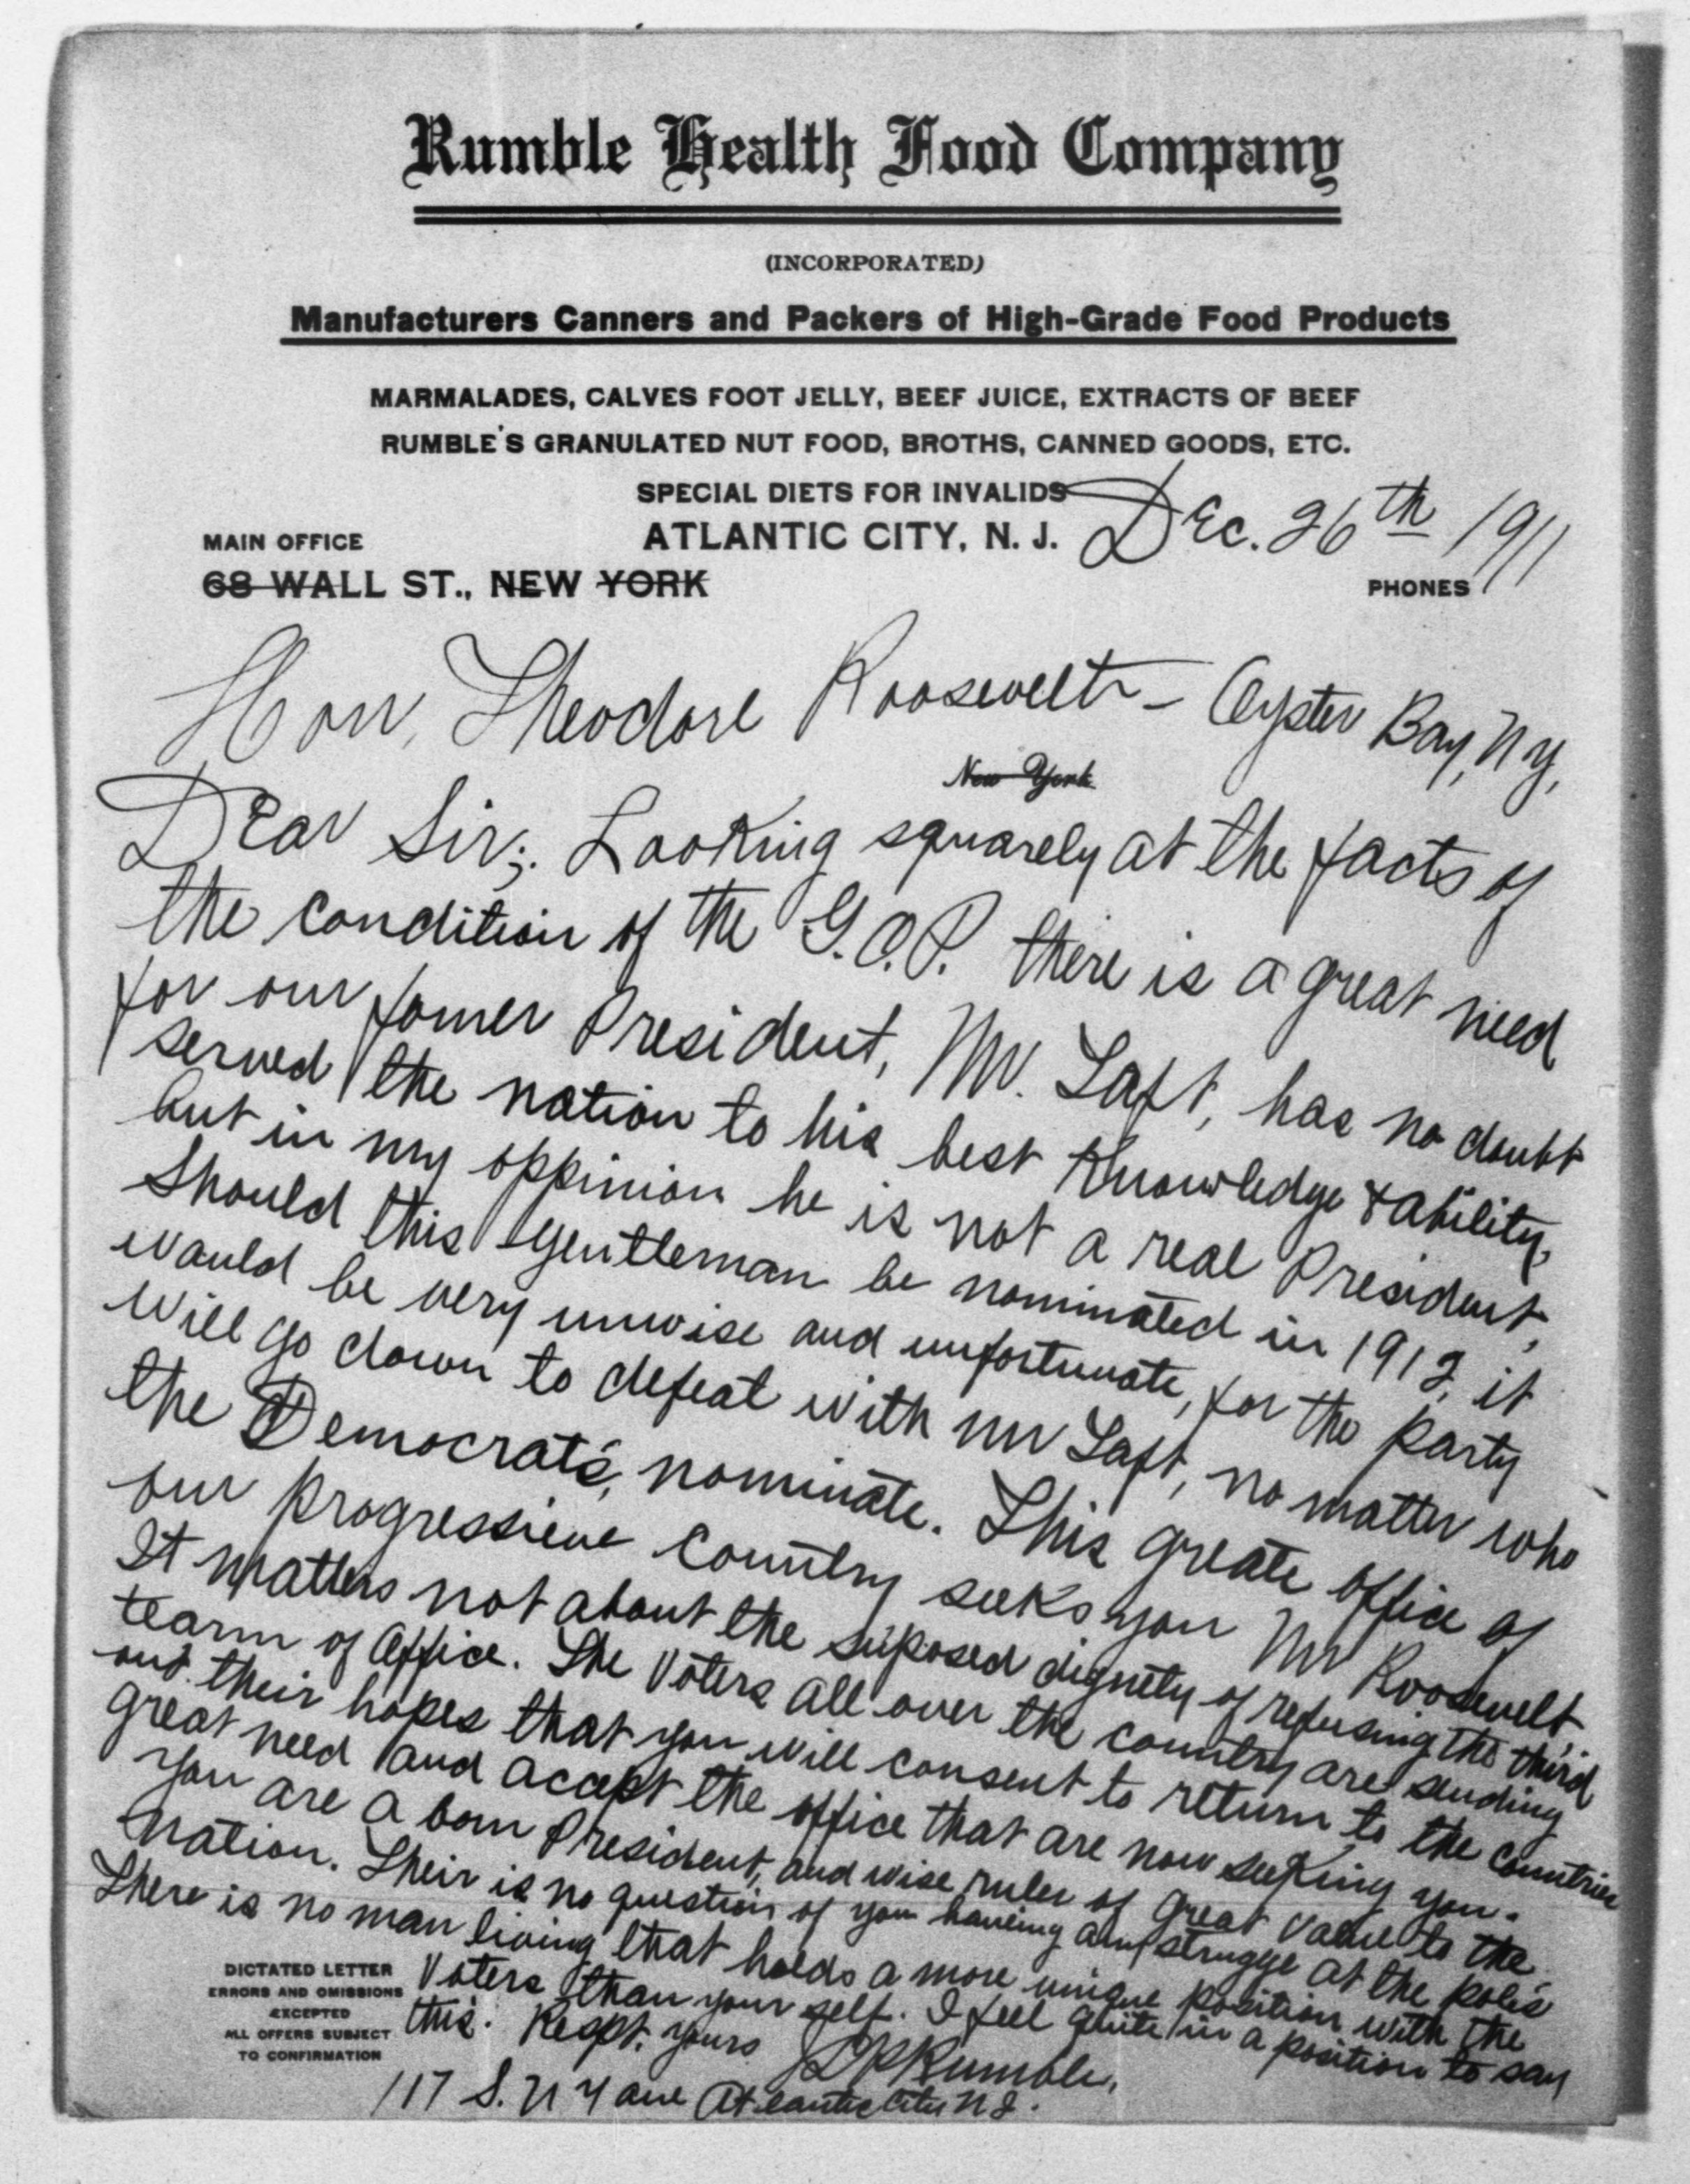 Rumble Health Food Company
(INCORPORATED)
Manufacturers Canners and Packers of High-Grade Food Products
MARMALADES, CALVES FOOT JELLY, BEEF JUICE, EXTRACTS OF BEEF
RUMBLE'S GRANULATED NUT FOOD, BROTHS, CANNED GOODS, ETC.
SPECIAL DIETS FOR INVALIDS
MAIN OFFICE
ATLANTIC CITY, N. J. Dec. 26th 1911
68 WALL ST., NEW YORK
PHONES
Hon, Theodore Roosevelt - Oyster Bay, N Y,
New York
Dear Sir;. Looking squarely at the facts of
the condition of the G.O.P. there is a great need
for our fomer President, Mr. Taft, has no doubt
served the nation to his best knowledge & ability,
but in my oppinion he is not a real President,
Should this gentleman be nominated in 1912, it
would be very unwise and unfortunate, for the party
will go down to defeat with Mr Taft, no matter who
the Democrat's, nominate. This greate office of
our progressieve country seeks you Mr Roosevelt,
It matters not about the suposed dignety of refusing the third
tearm of office. The Voters all over the country are sending
out their hopes that you will consent to return to the countries
great need and accept the office that are now seeking you.
You are a born President, and wise ruler of great value to the
Nation. Their is no question of you haveing any strugge at the poles
There is no man living that holds a more unique position with the
Voters than your self. I feel quite in a position to say
this. Respt. yours LPRumble,
117 S. N Y ave Atlantic City N J.
DICTATED LETTER
ERRORS AND OMISSIONS
EXCEPTED
ALL OFFERS SUBJECT
TO CONFIRMATION